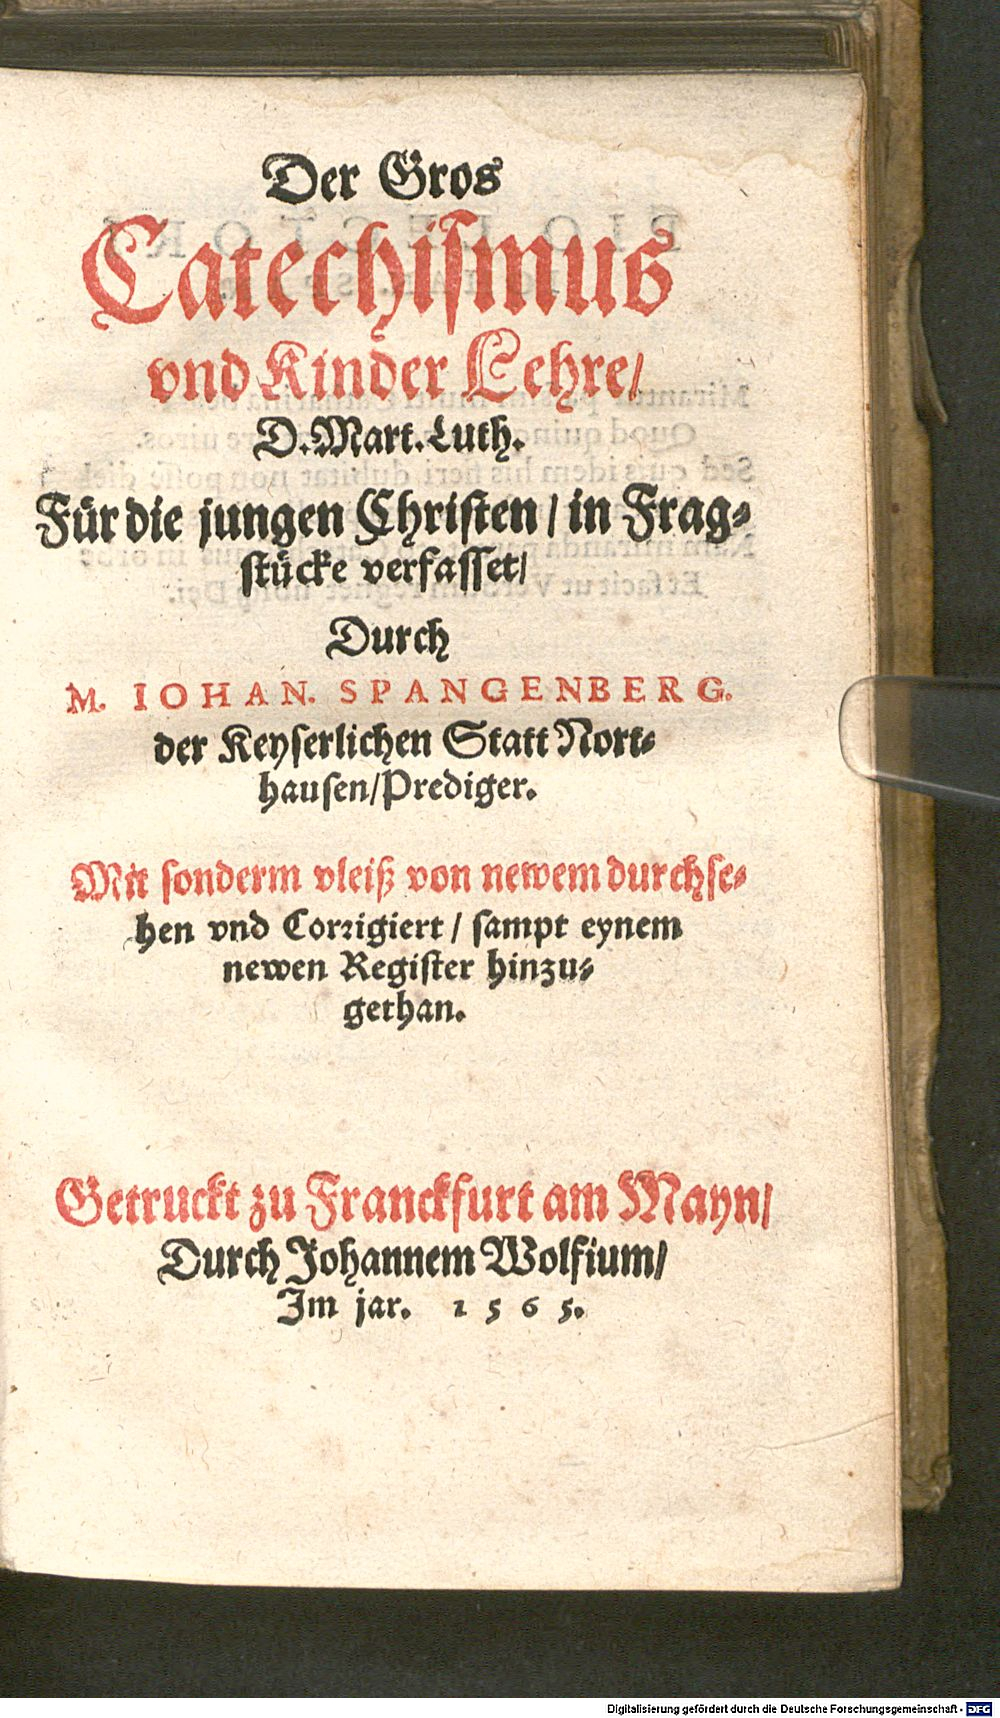 Der Gros
Catechiſmus
vnd Kinder Lehre/
D. Mart. Luth.
Für die jungen Chriſten / in Frag⸗
ſtücke verfaſſet/
Durch
M. IOHAN. SPANGENBERG.
der Keyſerlichen Statt Nort⸗
hauſen/Prediger.
Mit ſonderm vleiß von newem durchſe⸗
hen vnd Corꝛigiert / ſampt eynem
newen Regiſter hinzu⸗
gethan.
Getruckt zu Franckfurt am Mayn/
Durch Johannem Wolfium/
Im jar. 1 5 6 5.
Digitalisierung gefördert durch die Deutsche Forschungsgemeinschaft - DFG